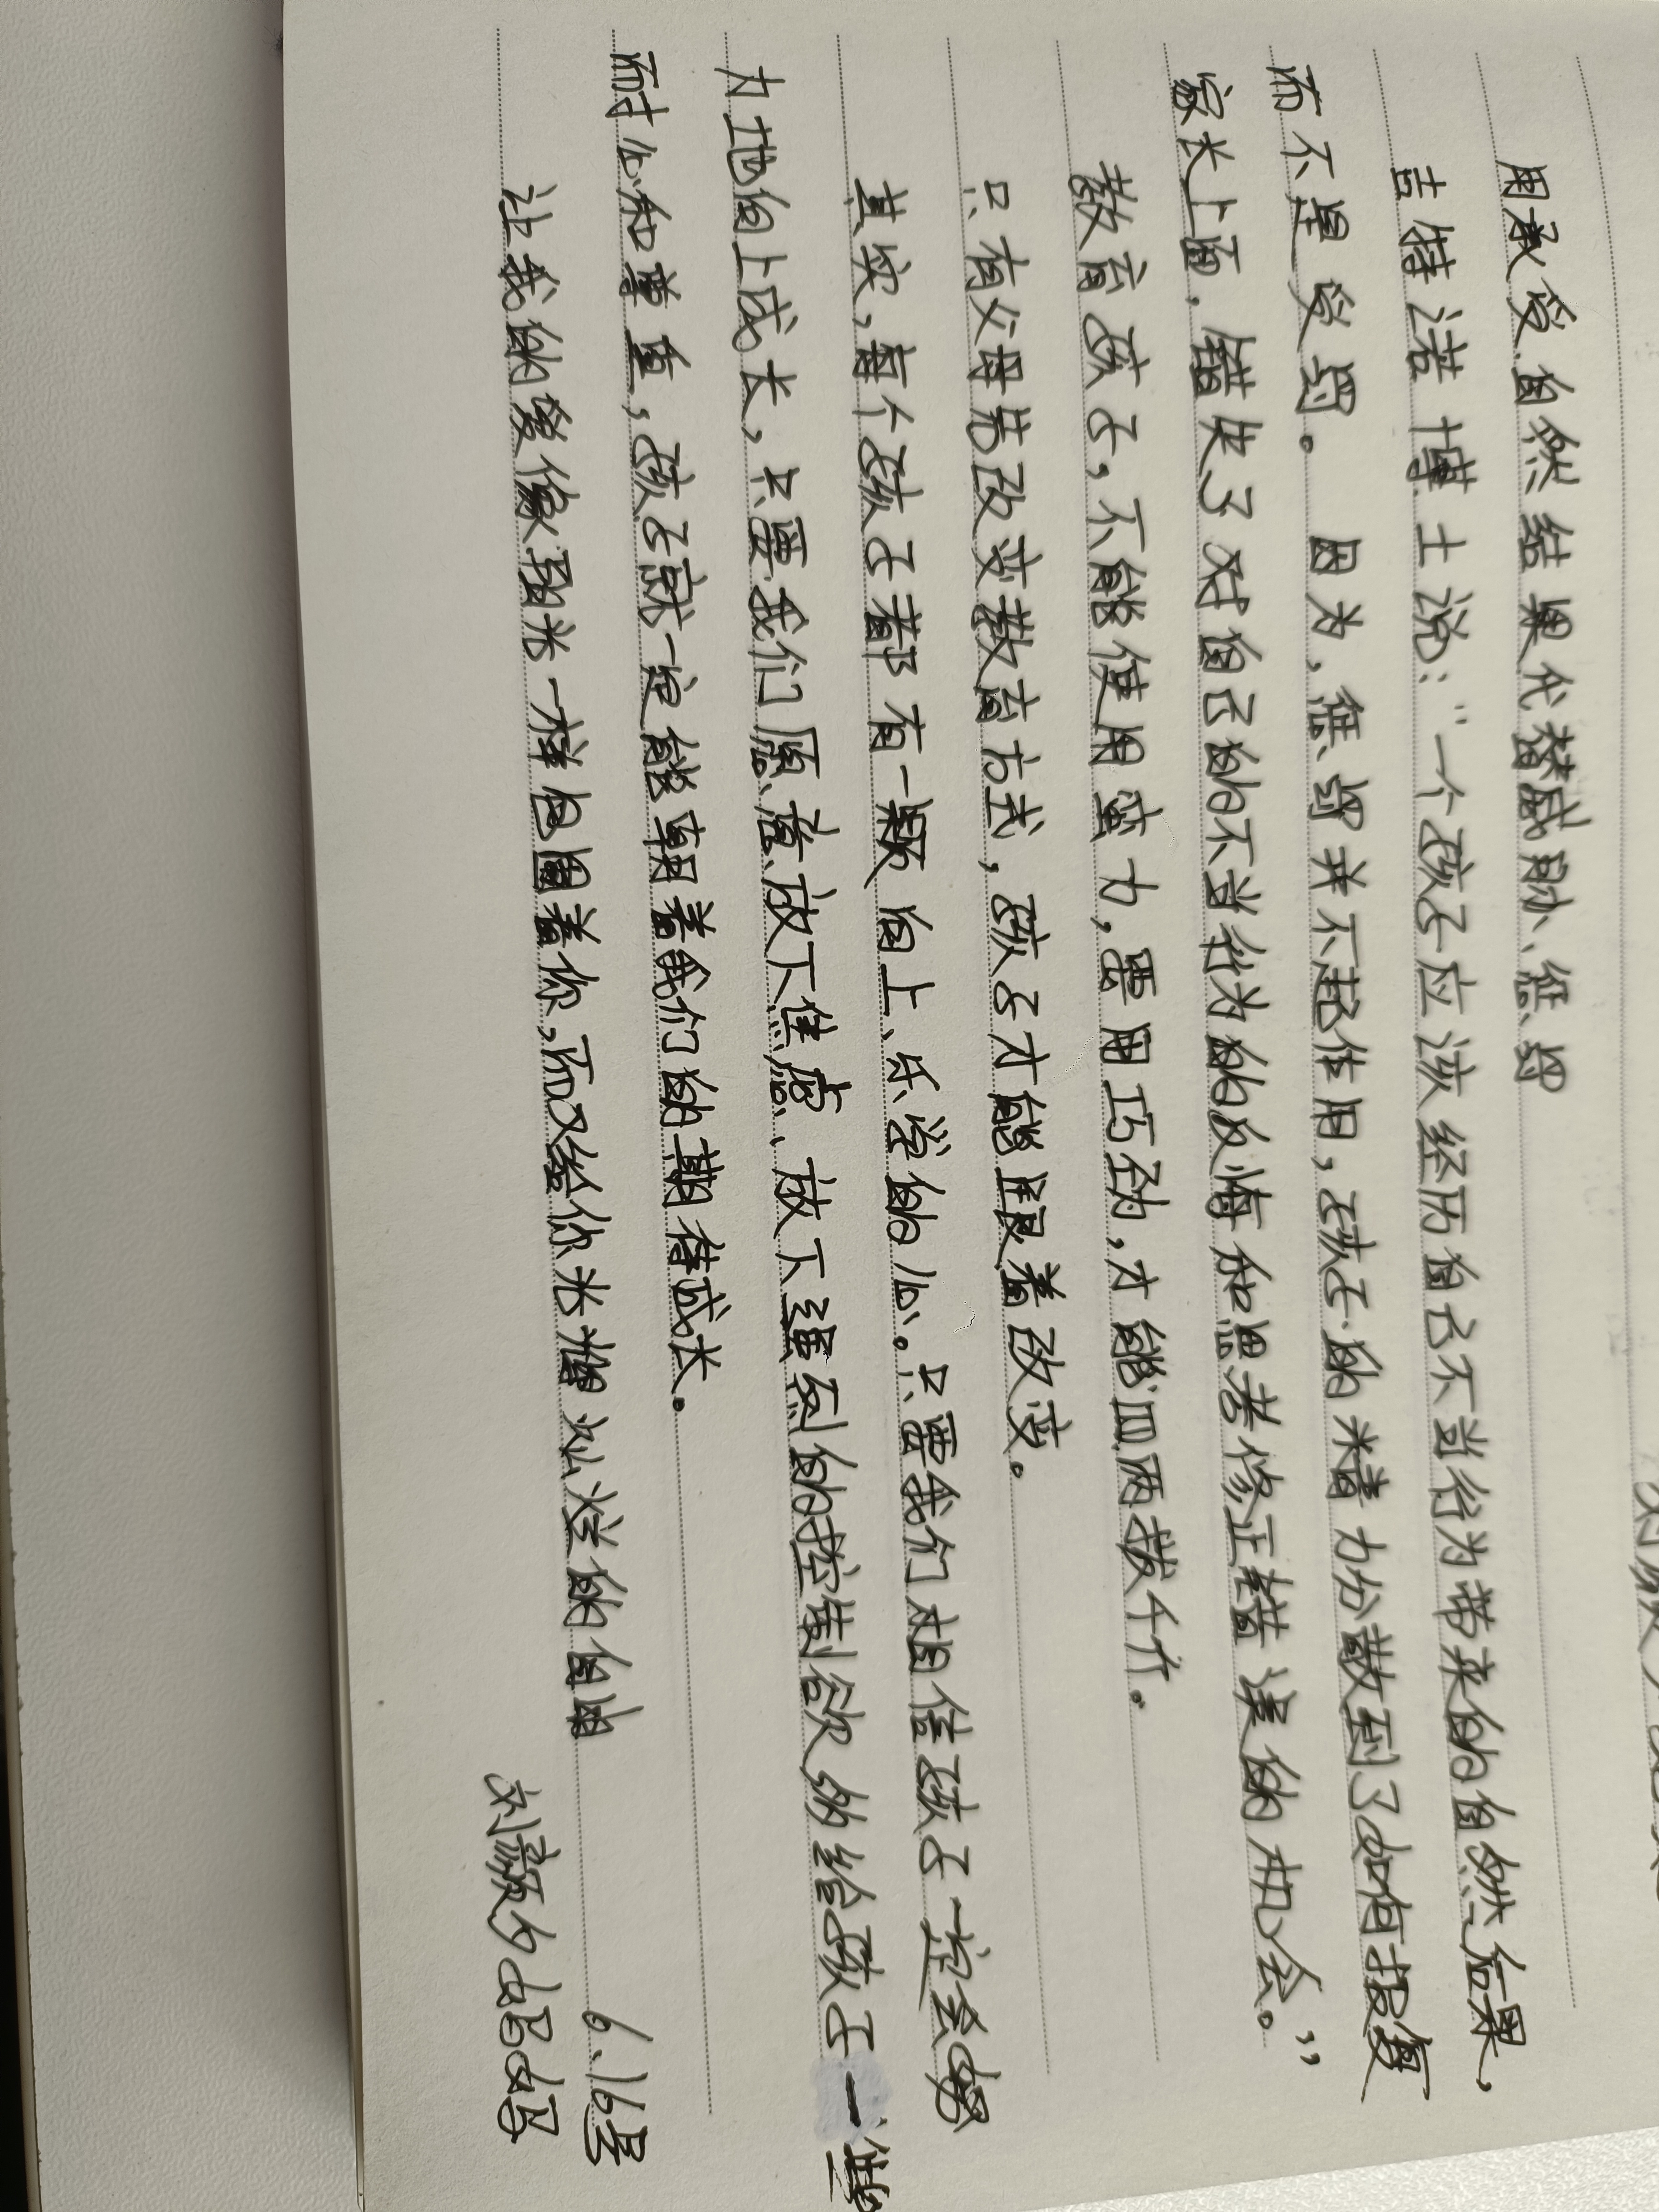 用承受自然结果代替威胁、惩罚
吉特诺博士说:“一个孩子应该经历自己不当行为带来的自然后果,
而不是受罚。因为,惩罚并不起作用,孩子的精力分散到了如何报复
家长上面,错失了对自己的不当行为的反悔和思考修正错误的机会。”
教育孩子,不能使用蛮力,要用巧劲,才能四两拨千斤。
只有父母先改变教育方式,孩子才能跟着改变。
其实,每个孩子都有一颗向上、乐学的心。只要我们相信孩子一定会努
力地向上成长,只要我们愿意放下焦虑、放下强烈的控制欲,给孩子一些
耐心和尊重,孩子就一定能朝着我们的期待成长。
让我的爱像阳光一样包围着你,而又给你光辉灿烂的自由
6.16号
刘颜夕妈妈